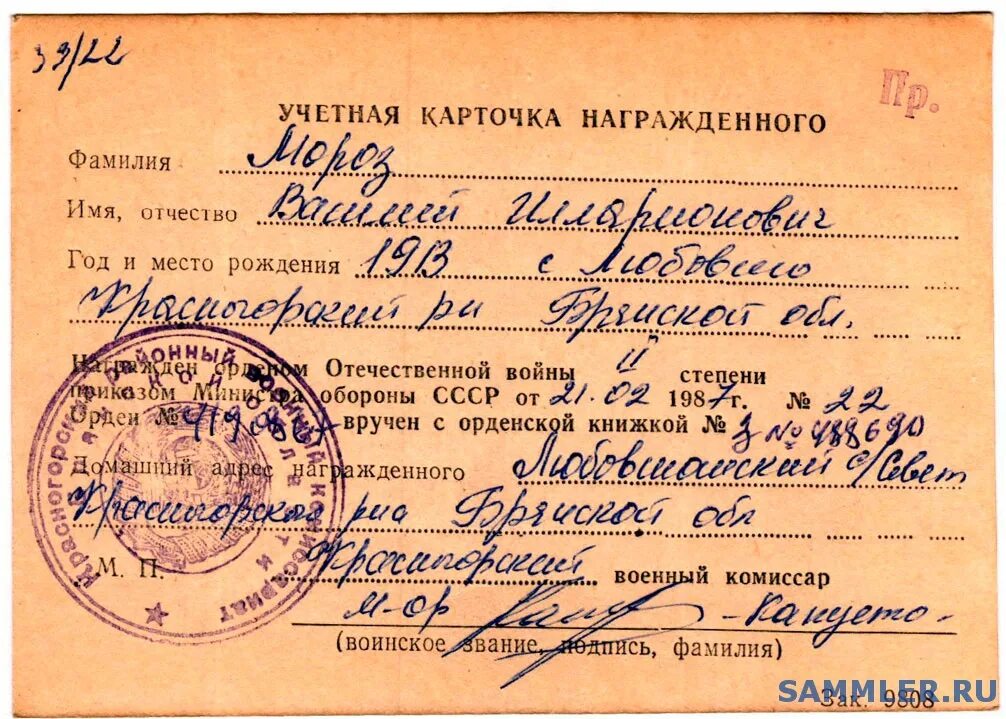 39/22
Пр.
УЧЕТНАЯ КАРТОЧКА НАГРАЖДЕННОГО
Фамилия Мороз
Имя, отчество Василий Илларионович
Год и место рождения 1913 с Любовшо
Красногорский р-н Брянской обл.
Награжден орденом Отечественной войны II степени
приказом Министра обороны СССР от 21.02 1987 г. № 22
Орден № вручен с орденской книжкой № З № 488690
Домашний адрес награжденного Любовшанский с/Совет
Красногорского р-на Брянской обл
М. П. Красногорский военный комиссар
М-ор Капусто
(воинское звание, подпись, фамилия)
Зак. 9808
Красногорский районный военный комиссариат
SAMMLER.RU